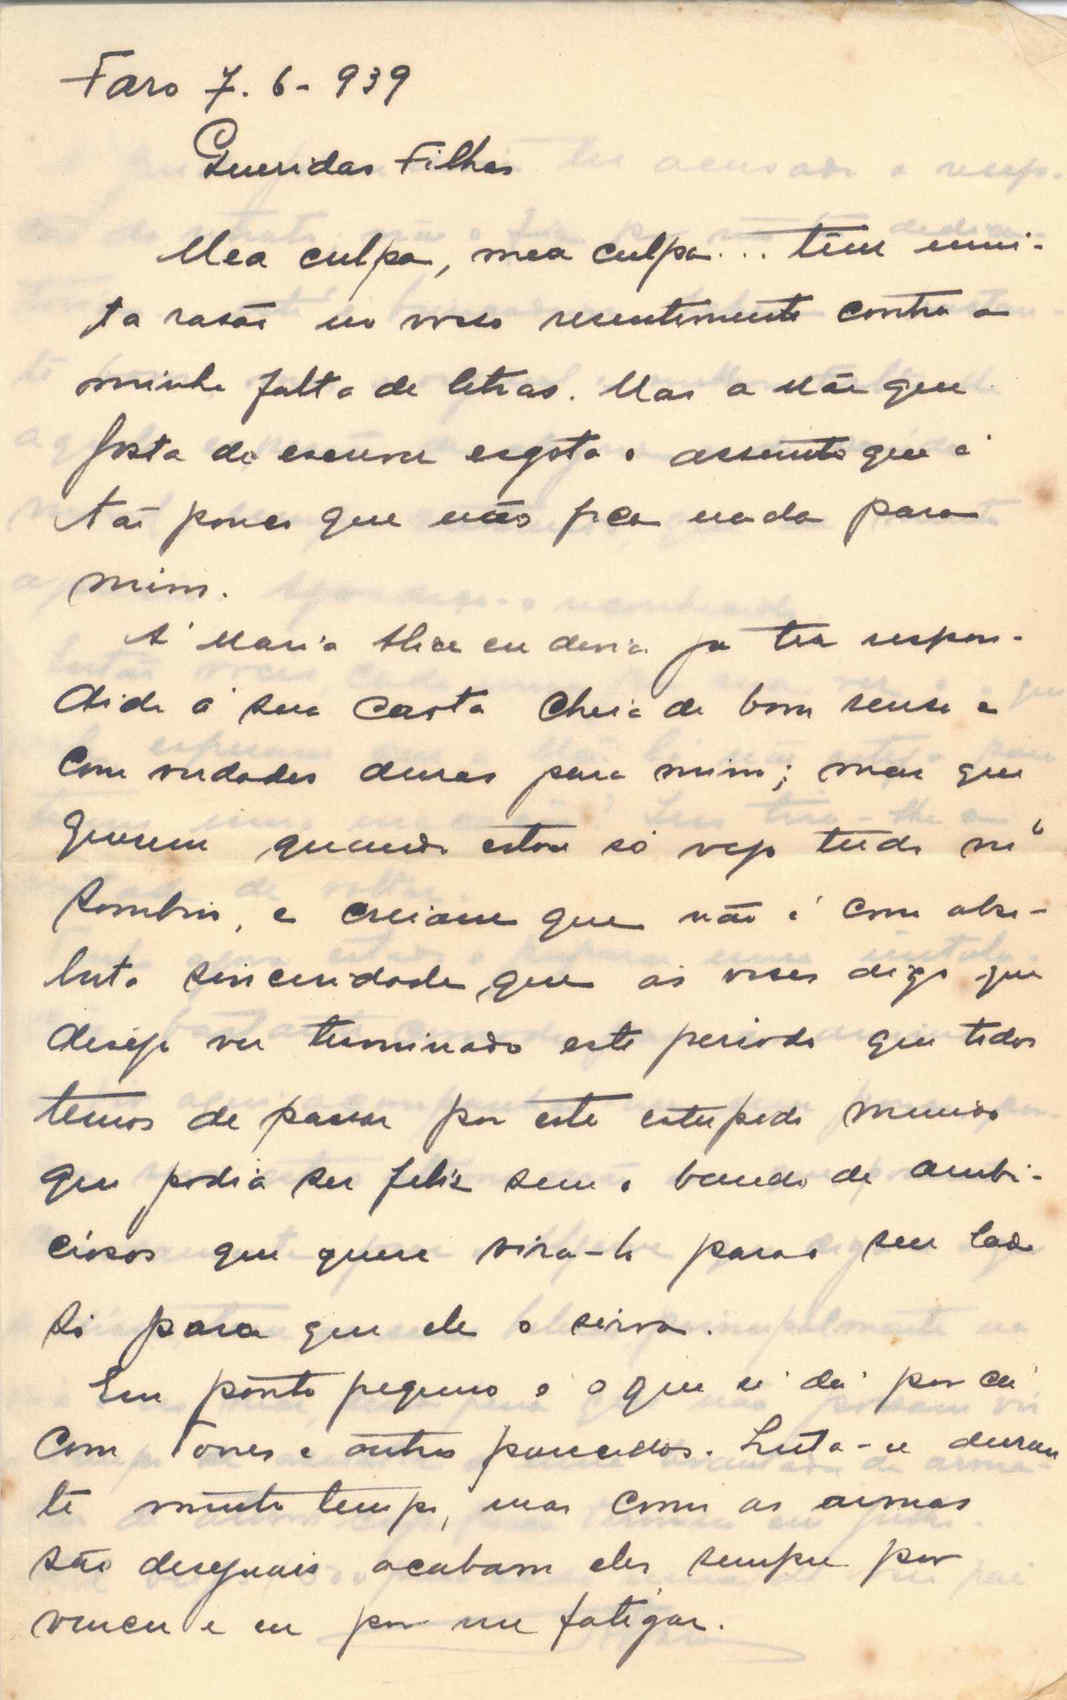 Faro 7.6-939
Queridas Filhas
Mea culpa, mea culpa... têm mui-
ta rasão no vosso resentimento contra a
minha falta de letras. Mas a Mãe que
gosta de escrever esgota o assunto que é
tão pouco que não fica nada para
mim.
A' Maria Alice eu devia ja ter respon-
dido á sua carta cheia de bom senso e
com verdades duras para mim; mas que
querem quando estou só vejo tudo
sombrio, e creiam que não é com abso-
luta sinceridade que ás veses digo que
desejo ver terminado este periodo que todos
temos de passar por este estupido mundo
que podia ser feliz sem o bando de ambi-
ciosos que quere vira-lo para o seu lado
só para que ele o sirva.
Em ponto pequeno é o que se dá por cá
com Torres e outros parecidos. Luta-se duran
te muito tempo, mas como as armas
são desiguais acabam eles sempre por
vencer e eu por me fatigar.